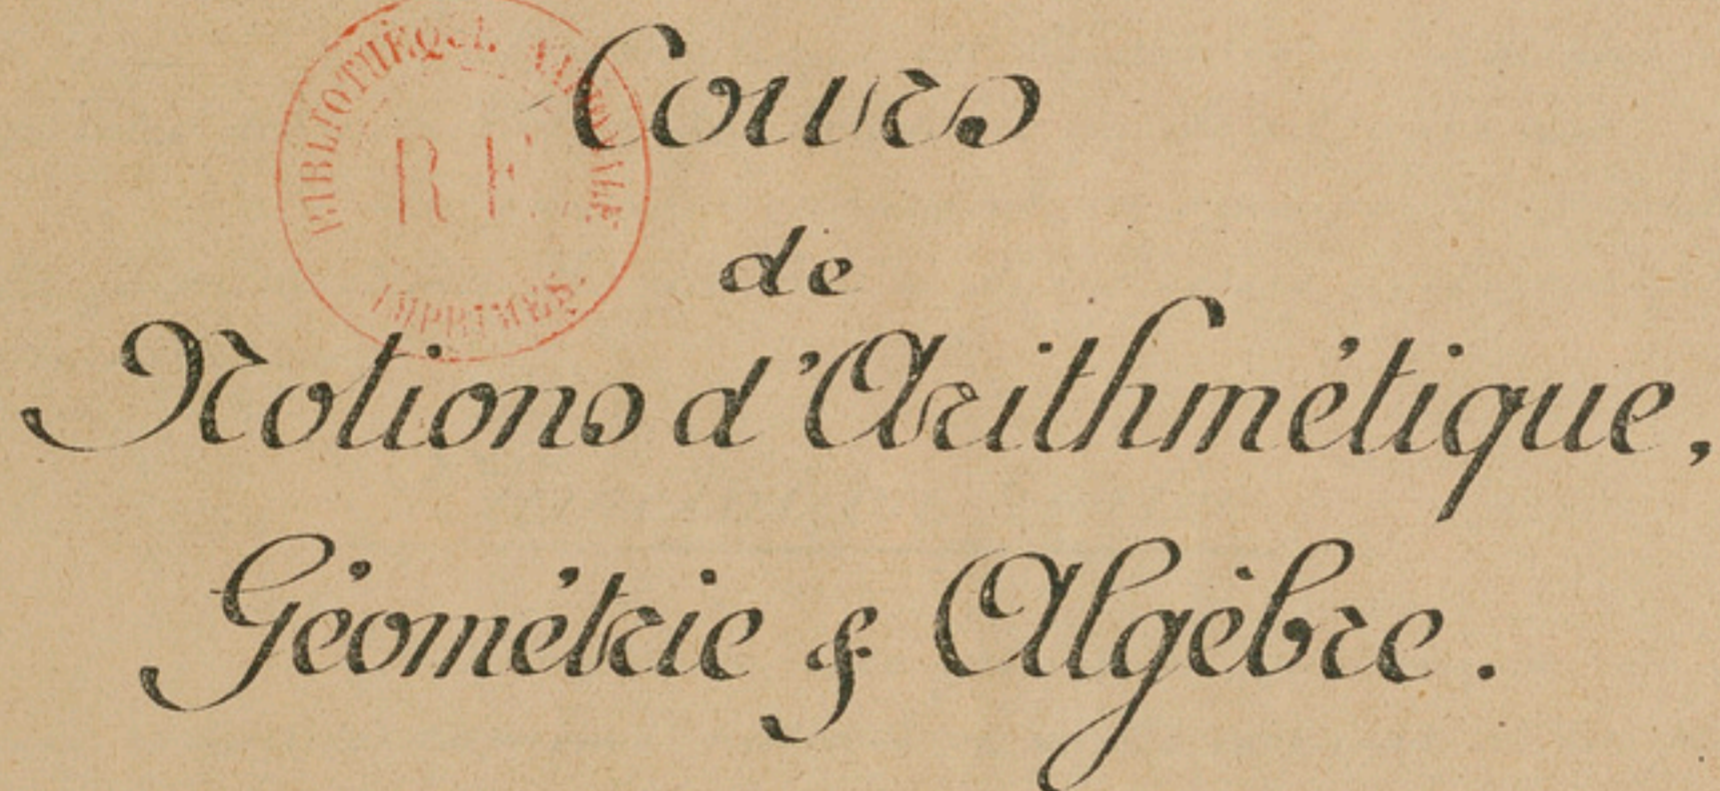 BIBLIOTHÈQUE NATIONALE
R F
IMPRIMÉS.
Cours
de
Notions d'Arithmétique,
Géométrie & Algèbre.